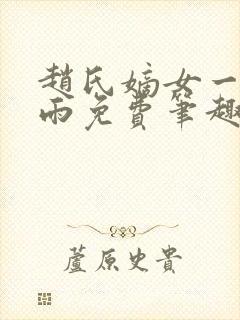 趙氏嫡女一
雨免費筆趣
蘆原史貴